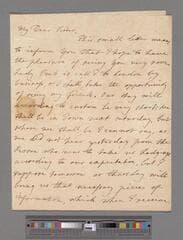 My Dear Sister,
This small letter comes
to inform you that I hope to have
the pleasure of seeing you very soon
Lady            is called to London by
business & I shall take the opportunity
of seeing my friends. Our stay will
according to custom be very short, we
shall be in Town next Saturday, but
where we shall be I cannot say, as
we did not hear yesterday from the
Person who was to take us lodgings
according to our expectation, but I
suppose tomorrow or Thursday will
bring us that necessary piece of
information, which when I receive